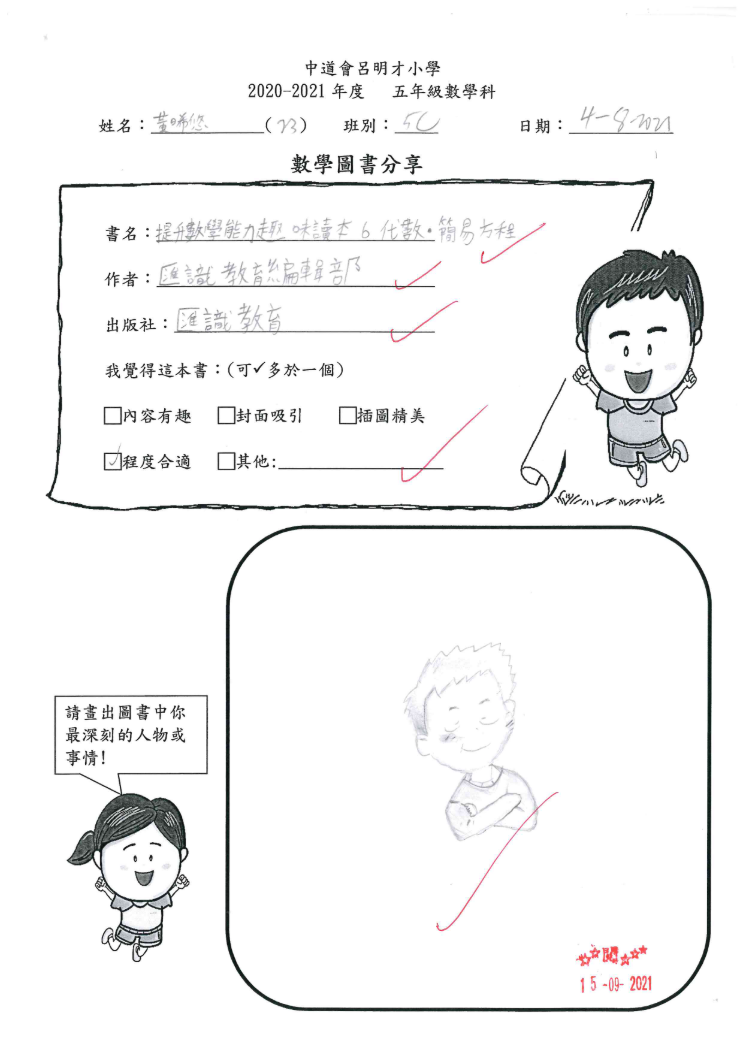 中道會呂明才小學
2020-2021 年度 五年級數學科
姓名：黃晞悠 (23) 班別：5C 日期：4-8-2021
數學圖書分享
書名：提升數學能力趣味讀本 6 代數·簡易方程
作者：匯識教育編輯部
出版社：匯識教育
我覺得這本書：(可✓多於一個)
□內容有趣 □封面吸引 □插圖精美
☑程度合適 □其他:
請畫出圖書中你
最深刻的人物或
事情!
閱
15-09-2021